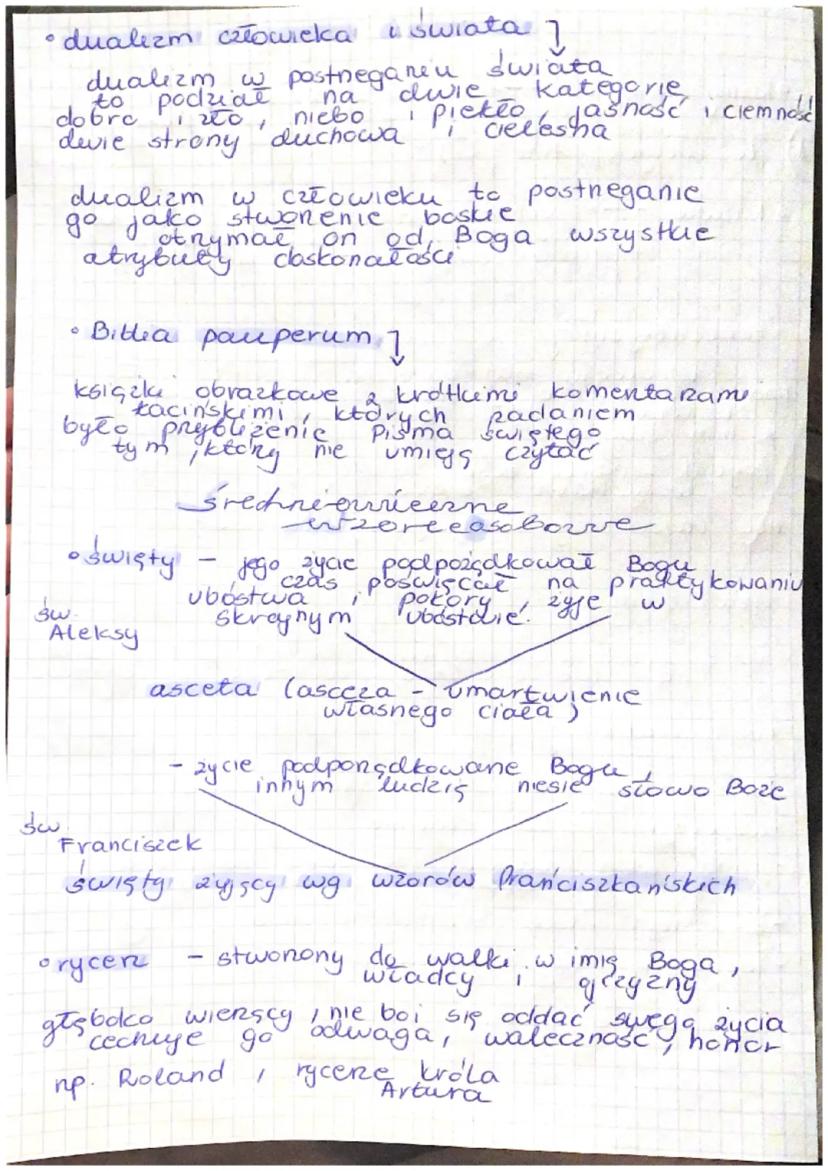 • dualizm człowieka i świata
dualizm w postrzeganiu świata
to podział na dwie kategorie
dobro i zło, niebo i piekło, jasność i ciemność
dwie strony duchowa i cielesna
dualizm w człowieku to postrzeganie
go jako stworzenie boskie
otrzymał on od Boga wszystkie
atrybuty doskonałości
• Biblia pauperum
książki obrazkowe z krótkimi komentarzami
łacińskimi, których zadaniem
było przybliżenie Pisma świętego
tym, którzy nie umieją czytać
średniowieczne
wzorce osobowe
• święty – jego życie podporządkował Bogu
czas poświęcał na praktykowaniu
ubóstwa i pokory, żyje w
skrajnym ubóstwie.
św.
Aleksy
asceta (asceza – umartwienie
własnego ciała)
– życie podporządkowane Bogu,
innym ludzią niesie słowo Boże
św.
Franciszek
święty żyjący wg wzorów franciszkańskich
• rycerz – stworzony do walki w imię Boga,
władcy i ojczyzny
głęboko wierzący, nie boi się oddać swego życia
cechuje go odwaga, waleczność, honor
np. Roland, rycerze króla
Artura